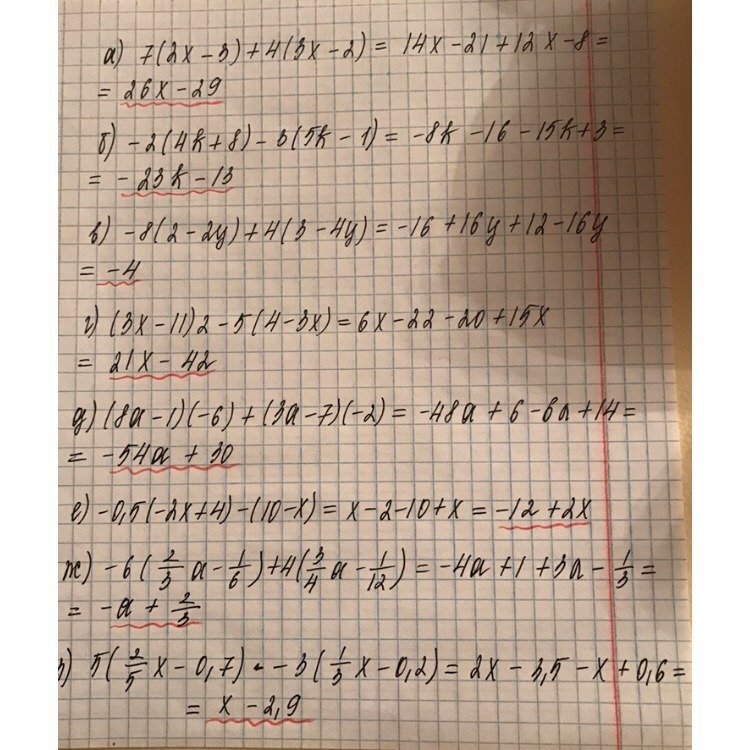 а) 7(2x-3)+4(3x-2) = 14x-21+12x-8=
= 26x-29
б) -2(4k+8)-3(5k-1)= -8k-16-15k+3=
= -23k-13
в) -8(2-2y)+4(3-4y)=-16+16y+12-16y
= -4
г) (3x-11)2-5(4-3x)=6x-22-20+15x
= 21x-42
д) (8a-1)(-6)+(3a-7)(-2)= -48a+6-6a+14=
= -54a+30
е) -0,5(-2x+4)-(10-x)= x-2-10+x = -12+2x
ж) -6(2/3 a - 1/6)+4(3/4 a - 1/12) = -4a+1+3a - 1/3 =
= -a + 2/3
з) 5(2/5 x - 0,7) - -3(1/3 x - 0,2) = 2x - 3,5 - x + 0,6 =
= x - 2,9